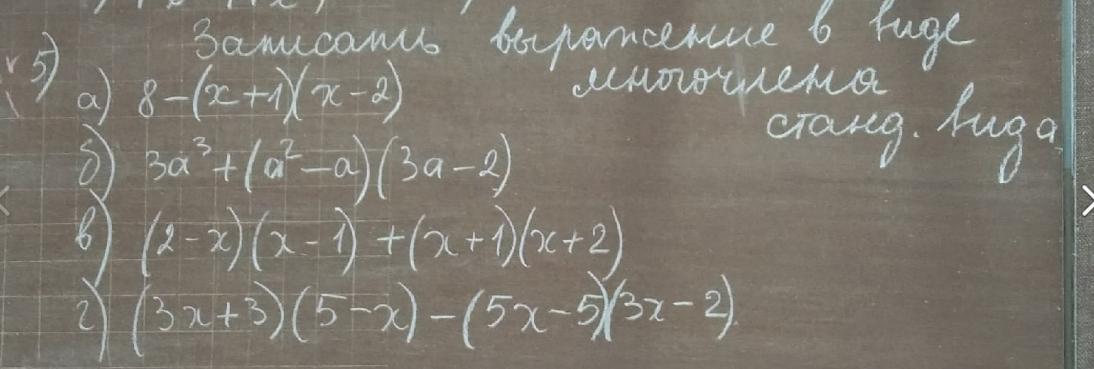 5) Записать выражение в виде
многочлена
станд. вида
а) 8-(x+1)(x-2)
б) 3a³+(a²-a)(3a-2)
в) (2-x)(x-1)+(x+1)(x+2)
г) (3x+3)(5-x)-(5x-5)(3x-2)